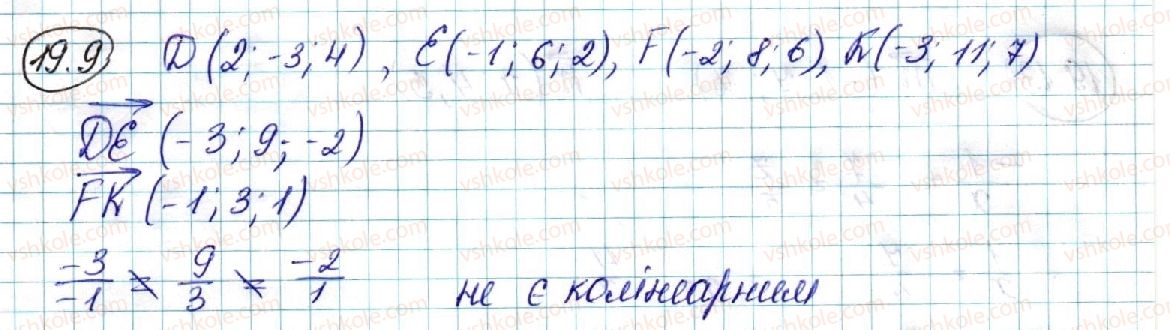 19.9 D(2; -3; 4), E(-1; 6; 2), F(-2; 8; 6), K(-3; 11; 7)
DE (-3; 9; -2)
FK (-1; 3; 1)
-3/-1 ≠ 9/3 ≠ -2/1 не є колінеарним